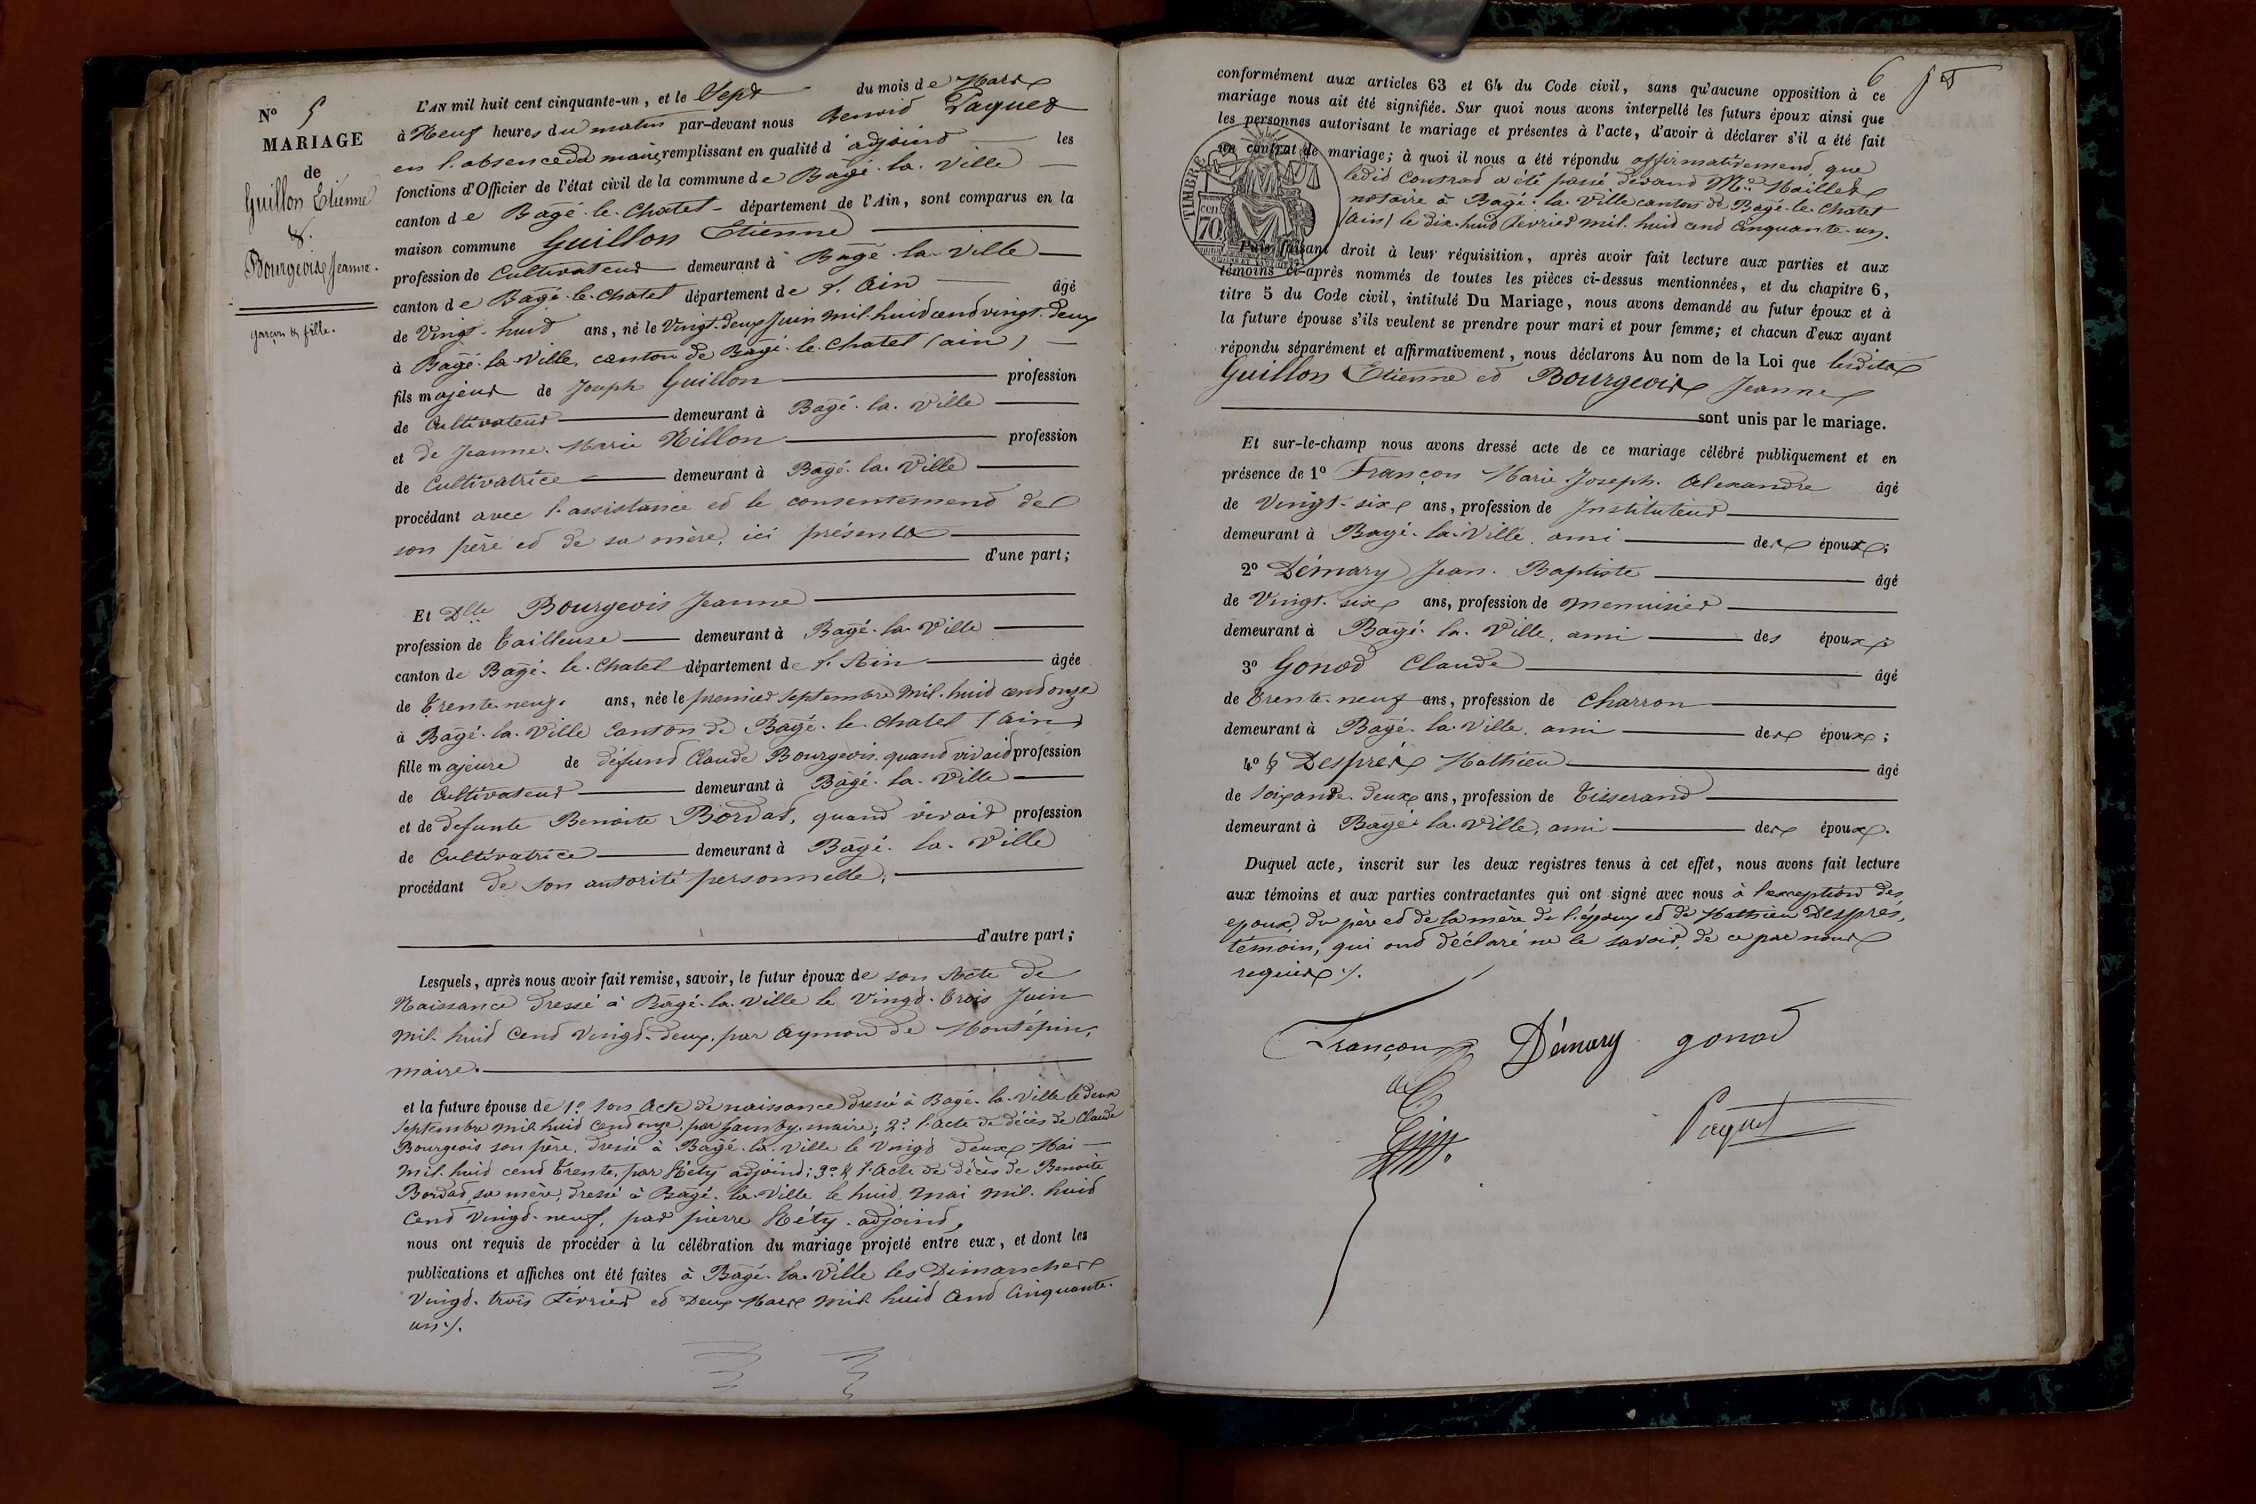 Nº 5
MARIAGE
de
Guillon Etienne
&.
Bourgeois Jeanne.
garçon & fille.
L'AN mil huit cent cinquante-un, et le Sept du mois de Mars
à Neuf heures du matin par-devant nous Benoid Paquet
en l'absence du maire, remplissant en qualité d'adjoind les
fonctions d'Officier de l'état civil de la commune de Bagé-la-Ville
canton de Bagé-le-Chatel département de l'Ain, sont comparus en la
maison commune Guillon Etienne
profession de Cultivateur demeurant à Bagé-la-Ville
canton de Bagé-le-Chatel département de l'Ain âgé
de Vingt-huit ans, né le Vingt-deux Juin mil-huid cend vingt-deux
à Bagé-la-Ville, canton de Bagé-le-Chatel (ain)
fils majeur de Joseph Guillon profession
de Cultivateur demeurant à Bagé-la-Ville
et de Jeanne-Marie Nillon profession
de Cultivatrice demeurant à Bagé-la-Ville
procédant avec l'assistance ed le consentemend de
son père ed de sa mère, ici présents
d'une part;
Et Dlle Bourgeois Jeanne
profession de Tailleuse demeurant à Bagé-la-Ville
canton de Bagé-le-Chatel département de l'Ain âgée
de Trente-neuf ans, née le premier Septembre mil-huid cend onze
à Bagé-la-Ville Canton de Bagé-le-Chatel (Ain)
fille majeure de défund Claude Bourgeois, quand vivaid profession
de Cultivateur demeurant à Bagé-la-Ville
et de defunte Benoite Bordat, quand vivait profession
de Cultivatrice demeurant à Bagé-la-Ville
procédant de son autorité personnelle;
d'autre part;
Lesquels, après nous avoir fait remise, savoir, le futur époux de son Acte de
Naissance dressé à Bagé-la-Ville le Vingd-trois Juin
mil-huid Cend Vingd-deux, par Aymon de Montépin,
maire.
et la future épouse de 1º Son Acte de naissance dressé à Bagé-la-Ville le deux
Septembre mil huid Cend onze, par maire; 2º l'acte de décès de Claude
Bourgeois son père, dressé à Bagé-la-Ville le Vingd deux Mai
mil-huid cend trente, par Héty adjoind; 3º l'Acte de décès de Benoite
Bordad, sa mère, dressé à Bagé-la-Ville le huid mai mil-huid
Cend vingd-neuf, par pierre Héty adjoind,
nous ont requis de procéder à la célébration du mariage projeté entre eux, et dont les
publications et affiches ont été faites à Bagé-la-Ville les Dimanches
Vingd-trois Février ed Deux Mars mil-huid Cend Cinquante-
un./.
6
conformément aux articles 63 et 64 du Code civil, sans qu'aucune opposition à ce
mariage nous ait été signifiée. Sur quoi nous avons interpellé les futurs époux ainsi que
les personnes autorisant le mariage et présentes à l'acte, d'avoir à déclarer s'il a été fait
un contrat de mariage; à quoi il nous a été répondu affirmativemend, que
ledid Contrad a été passé devand Me Maillet
notaire à Bagé-la-Ville canton de Bagé-le-Chatel
(Ain) le dix-huid février mil-huid cend Cinquante-un.
TIMBRE
cen
70
Puis faisant droit à leur réquisition, après avoir fait lecture aux parties et aux
témoins ci-après nommés de toutes les pièces ci-dessus mentionnées, et du chapitre 6,
titre 5 du Code civil, intitulé Du Mariage, nous avons demandé au futur époux et à
la future épouse s'ils veulent se prendre pour mari et pour femme; et chacun d'eux ayant
répondu séparément et affirmativement, nous déclarons Au nom de la Loi que lesdits
Guillon Etienne ed Bourgeois Jeanne
sont unis par le mariage.
Et sur-le-champ nous avons dressé acte de ce mariage célébré publiquement et en
présence de 1º Françon Marie Joseph Alexandre âgé
de Vingt-six ans, profession de Instituteur
demeurant à Bagé-la-Ville, ami des époux;
2º Démary Jean-Baptiste âgé
de Vingt-six ans, profession de menuisier
demeurant à Bagé-la-Ville, ami des époux;
3º Gonod Claude âgé
de Trente-neuf ans, profession de Charron
demeurant à Bagé-la-Ville, ami des époux;
4º Desprès Mathieu âgé
de Soixante-deux ans, profession de Tisserand
demeurant à Bagé-la-Ville, ami des époux.
Duquel acte, inscrit sur les deux registres tenus à cet effet, nous avons fait lecture
aux témoins et aux parties contractantes qui ont signé avec nous à l'exception des
epoux, du père ed de la mère de l'époux ed de Mathieu Desprès,
témoin, qui ond déclaré ne le savoir, de ce par nous
requis./.
Françon
Démary
gonod
Paquet